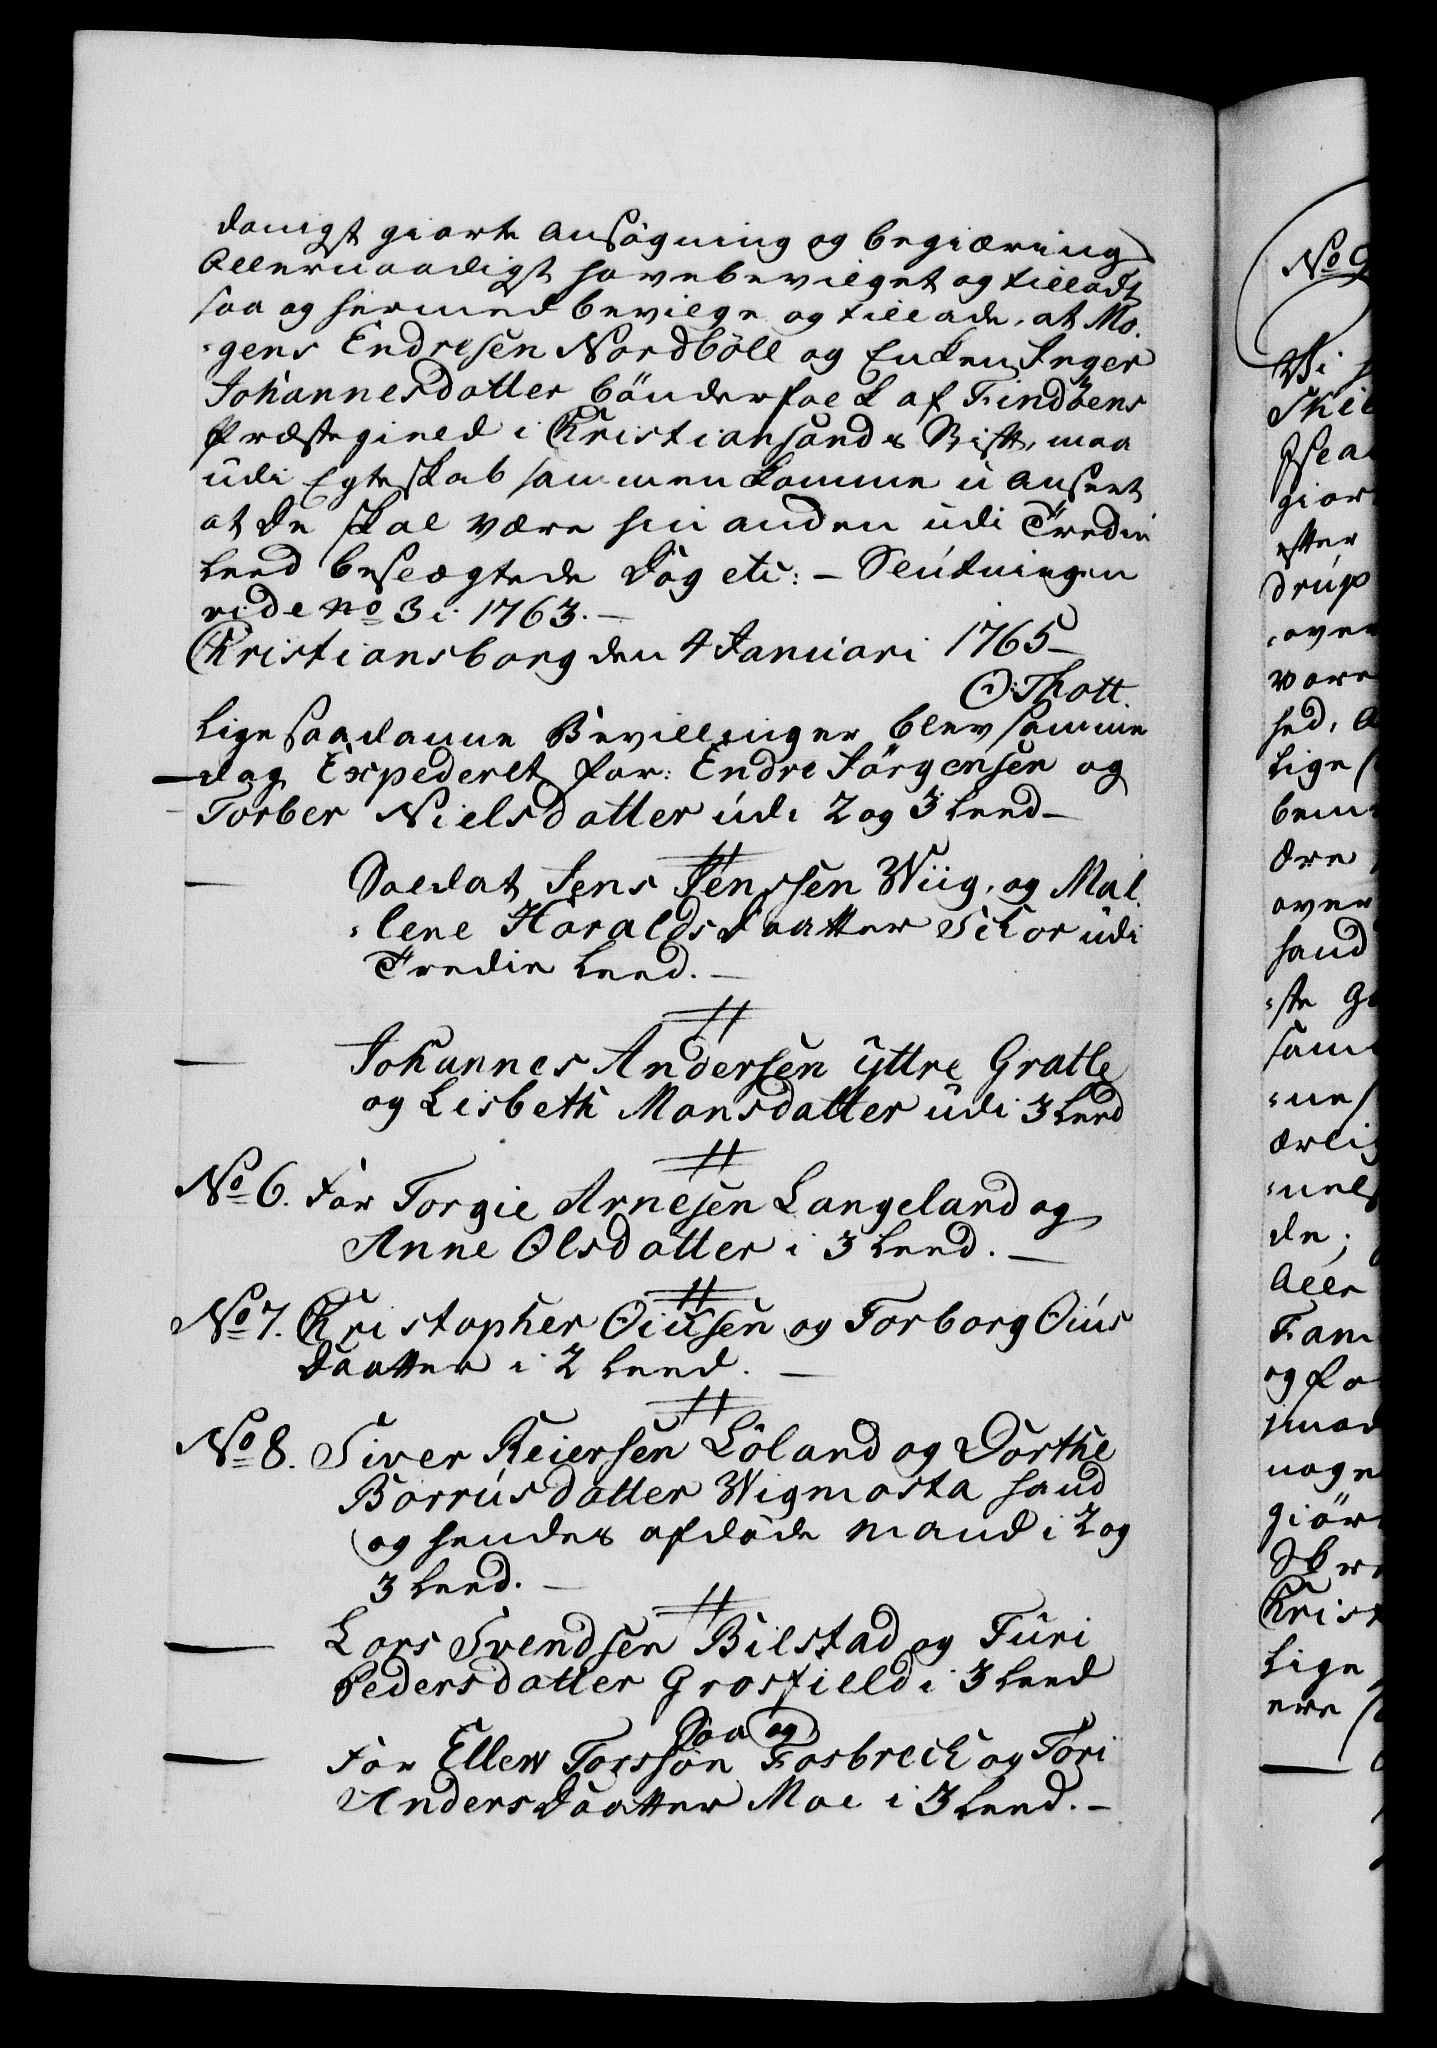 danigst giorte Ansögning og begiæring
Allernaadigst have bevilget og tilladt
saa og hermed bevilge og tillade, at Mo-
gens Endresen Nordböll og Enken Inger
Johannesdatter bönderfolk af Findöens
Præstegield i Christiansands Stift, maa
udi Egteskab sammenkomme u Anseet
at de skal være hin anden udi Tredie
Leed beslægtede Dog etc: - Slutningen
vide No 3 i 1763. -
Christiansborg den 4 Januari 1765 -
O: Thott.
Lige saadanne Bevillinger blev samme
dag Expederet for: Endre Jörgensen og
Torber Nielsdatter udi 2 og 3 Leed -
Soldat Jens Jenssen Wiig, og Mal-
lene Haraldsdaatter Schor udi
Tredie Leed. -
Johannes Andersen yttre Gratle
og Lisbeth Monsdatter udi 3 Leed
No 6. For Torgie Arnesen Langeland og
Anne Olsdatter i 3 Leed. -
No 7. Christopher Oiusen og Torborg Oius
Daatter i 2 Leed. -
No 8. Siver Reiersen Löland og Dorthe
Borrusdatter Wigmosta hand
og hendes afdöde Mand i 2 og
3 Leed. -
Lars Svendsen Bilstad og Turi
Pedersdatter Grosfield i 3 Leed
Saa og
For Ellew Torssøn Fosbrech og Tori
Anders Daatter Moe i 3 Leed. -
No 9
Vi
giort
efter
over
vore
hed, A
Lige
ære
over
hand
ærlig
de;
Alle
og fo
giör
Christ
Lige